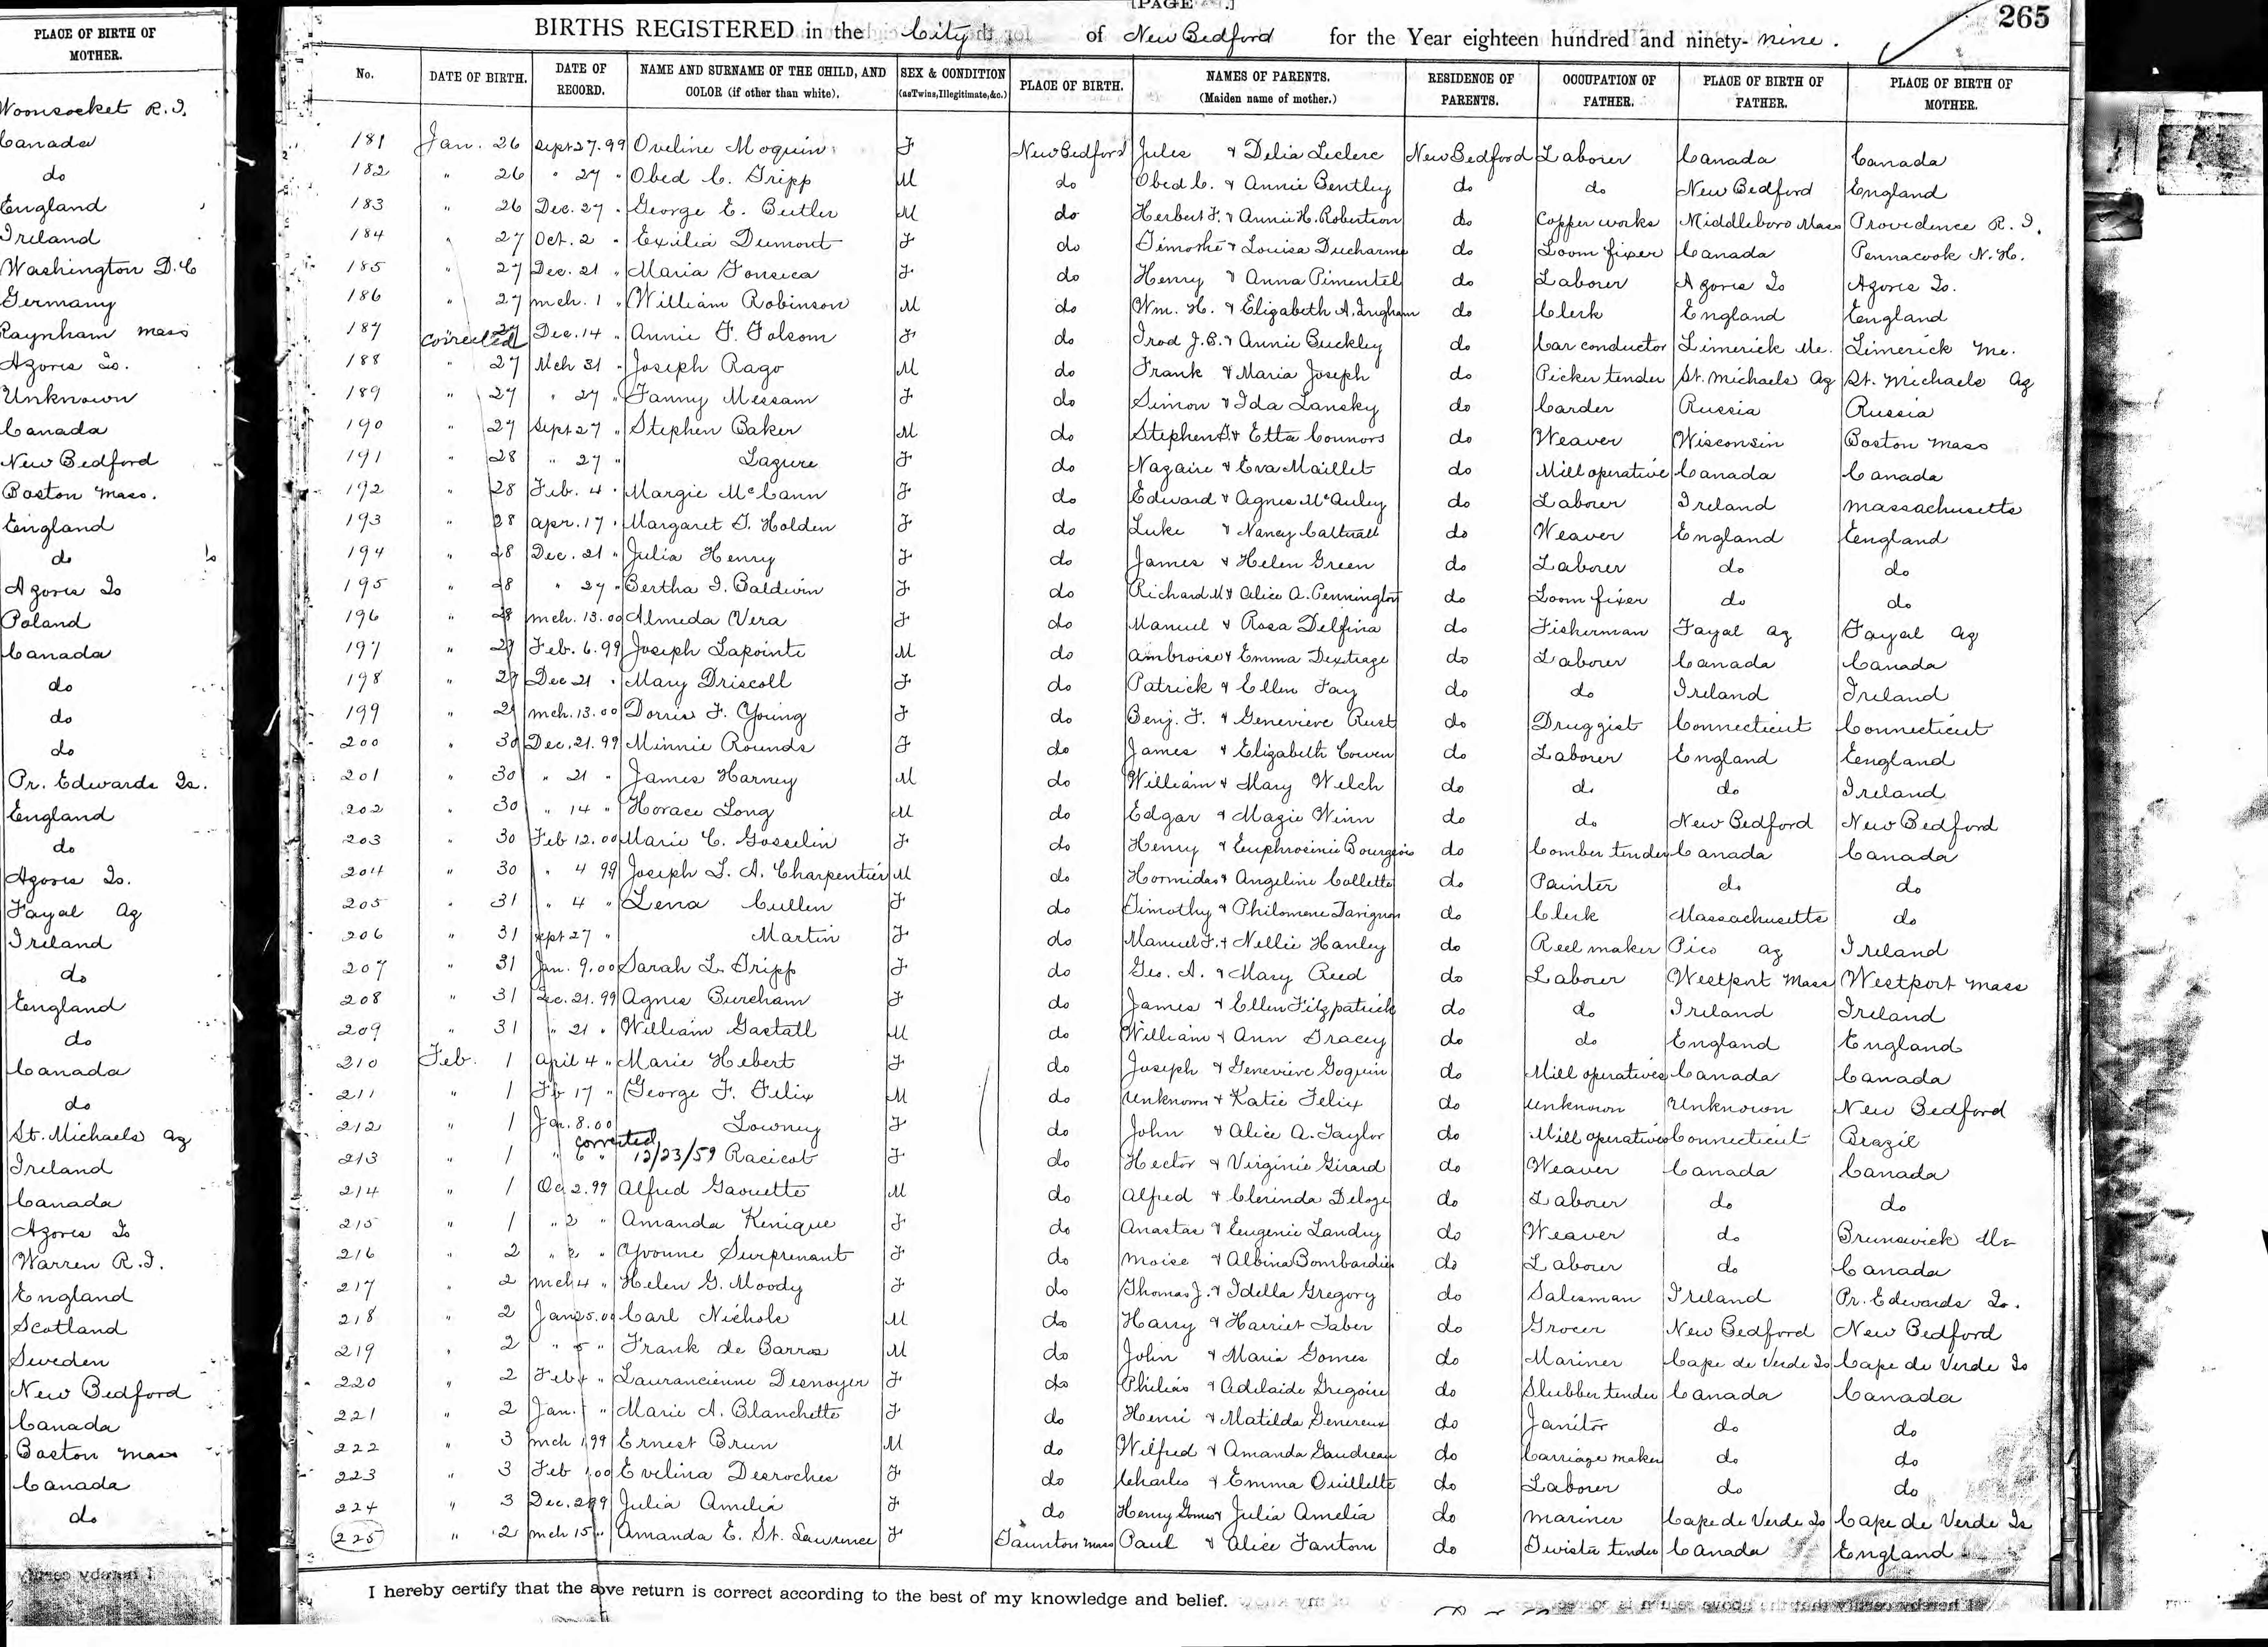 PLACE OF BIRTH OF
MOTHER.
Woonsocket R.I.
Canada
do
England
Ireland
Washington D.C
Germany
Raynham Mass
Azores Is.
Unknown
Canada
New Bedford
Boston Mass.
England
do
Azores Is
Poland
Canada
do
do
do
Pr. Edwards Is.
England
do
Azores Is.
Fayal Az
Ireland
do
England
do
Canada
do
St. Michaels Az
Ireland
Canada
Azores Is
Warren R.I.
England
Scotland
Sweden
New Bedford
Canada
Boston Mass
Canada
do
[PAGE .]
265
BIRTHS REGISTERED in the City of New Bedford for the Year eighteen hundred and ninety-nine.
No. DATE OF BIRTH. DATE OF RECORD. NAME AND SURNAME OF THE CHILD, AND COLOR (if other than white). SEX & CONDITION (as Twins, Illegitimate, &c.) PLACE OF BIRTH. NAMES OF PARENTS. (Maiden name of mother.) RESIDENCE OF PARENTS. OCCUPATION OF FATHER. PLACE OF BIRTH OF FATHER. PLACE OF BIRTH OF MOTHER.
181 Jan. 26 Sept 27. 99 Oveline Moquin F New Bedford Jules & Delia Leclerc New Bedford Laborer Canada Canada
182 " 26 " 27 " Obed C. Tripp M do Obed C. & Annie Bentley do do New Bedford England
183 " 26 Dec. 27 " George E. Butler M do Herbert F. & Annie H. Robertson do Copper works Middleboro Mass Providence R.I.
184 " 27 Oct. 2 " Exilia Dumont F do Timothé & Louisa Ducharme do Loom fixer Canada Pennacook N.H.
185 " 27 Dec. 21 " Maria Fonseca F do Henry & Anna Pimentel do Laborer Azores Is Azores Is.
186 " 27 Mch. 1 " William Robinson M do Wm. H. & Elizabeth A. Ingham do Clerk England England
187 " 27 corrected Dec. 14 " Annie F. Folsom F do Irod J.B. & Annie Buckley do Car conductor Limerick Me. Limerick Me.
188 " 27 Mch 31 " Joseph Rago M do Frank & Maria Joseph do Picker tender St. Michaels Az St. Michaels Az
189 " 27 " 27 " Fanny Messam F do Simon & Ida Lansky do Carder Russia Russia
190 " 27 Sept 27 " Stephen Baker M do Stephen & Etta Connors do Weaver Wisconsin Boston Mass
191 " 28 " 27 " Lazure F do Nazaire & Eva Maillet do Mill operative Canada Canada
192 " 28 Feb. 4 " Margie McCann F do Edward & Agnes McAuley do Laborer Ireland Massachusetts
193 " 28 Apr. 17 " Margaret G. Holden F do Luke & Nancy Catterall do Weaver England England
194 " 28 Dec. 21 " Julia Henry F do James & Helen Green do Laborer do do
195 " 28 " 27 " Bertha I. Baldwin F do Richard M. & Alice A. Pennington do Loom fixer do do
196 " 28 Mch. 13. 00 Almeda Vera F do Manuel & Rosa Delfina do Fisherman Fayal Az Fayal Az
197 " 29 Feb. 6. 99 Joseph Lapointe M do Ambroise & Emma Dextrage do Laborer Canada Canada
198 " 29 Dec 21 " Mary Driscoll F do Patrick & Ellen Fay do do Ireland Ireland
199 " 29 Mch. 13. 00 Dorris F. Young F do Benj. F. & Genevieve Rust do Druggist Connecticut Connecticut
200 " 30 Dec. 21. 99 Minnie Rounds F do James & Elizabeth Cowen do Laborer England England
201 " 30 " 21 " James Harney M do William & Mary Welch do do do Ireland
202 " 30 " 14 " Horace Long M do Edgar & Mazie Winn do do New Bedford New Bedford
203 " 30 Feb 12. 00 Marie C. Gosselin F do Henry & Euphrosinie Bourgeois do Comber tender Canada Canada
204 " 30 " 4 99 Joseph L. A. Charpentier M do Hormidas & Angeline Collette do Painter do do
205 " 31 " 4 " Lena Cullen F do Timothy & Philomene Tavignon do Clerk Massachusetts do
206 " 31 Sept 27 " Martin F do Manuel F. & Nellie Hanley do Reel maker Pico Az Ireland
207 " 31 Jan. 9. 00 Sarah L. Tripp F do Geo. A. & Mary Reed do Laborer Westport Mass Westport Mass
208 " 31 Dec. 21. 99 Agnes Burcham F do James & Ellen Fitzpatrick do do Ireland Ireland
209 " 31 " 21 " William Gastall M do William & Ann Tracey do do England England
210 Feb. 1 April 4 " Marie Hebert F do Joseph & Genevieve Goquin do Mill operatives Canada Canada
211 " 1 Fb 17 " George F. Felix M do Unknown & Katie Felix do Unknown Unknown New Bedford
212 " 1 Jan. 8. 00 Lowney F do John & Alice A. Taylor do Mill operatives Connecticut Brazil
213 " 1 " 6 " corrected 12/23/59 Racicot F do Hector & Virginie Girard do Weaver Canada Canada
214 " 1 Oc 2. 99 Alfred Gaouette M do Alfred & Clerinda Deloge do Laborer do do
215 " 1 " 2 " Amanda Kenique F do Anastas & Eugenie Landry do Weaver do Brunswick Me
216 " 2 " 2 " Yvonne Surprenant F do Moise & Albina Bombardier do Laborer do Canada
217 " 2 Mch 4 " Helen G. Moody F do Thomas J. & Idella Gregory do Salesman Ireland Pr. Edwards Is.
218 " 2 Jan 25. 00 Carl Nichols M do Harry & Harriet Taber do Grocer New Bedford New Bedford
219 " 2 " 5 " Frank de Barros M do John & Maria Gomes do Mariner Cape de Verde Is Cape de Verde Is
220 " 2 Feb " Laurancienne Desnoyer F do Philias & Adelaide Gregoire do Slubber tender Canada Canada
221 " 2 Jan. " Marie A. Blanchette F do Henri & Matilda Genereux do Janitor do do
222 " 3 Mch 1 99 Ernest Brun M do Wilfred & Amanda Gaudreau do Carriage maker do do
223 " 3 Feb 00 Evelina Desroches F do Charles & Emma Ouillette do Laborer do do
224 " 3 Dec. 2 99 Julia Amelia F do Henry Gomes & Julia Amelia do Mariner Cape de Verde Is Cape de Verde Is
225 " 2 Mch 15 " Amanda E. St. Lawrence F Taunton Mass Paul & Alice Fantom do Twister tender Canada England
I hereby certify that the above return is correct according to the best of my knowledge and belief.